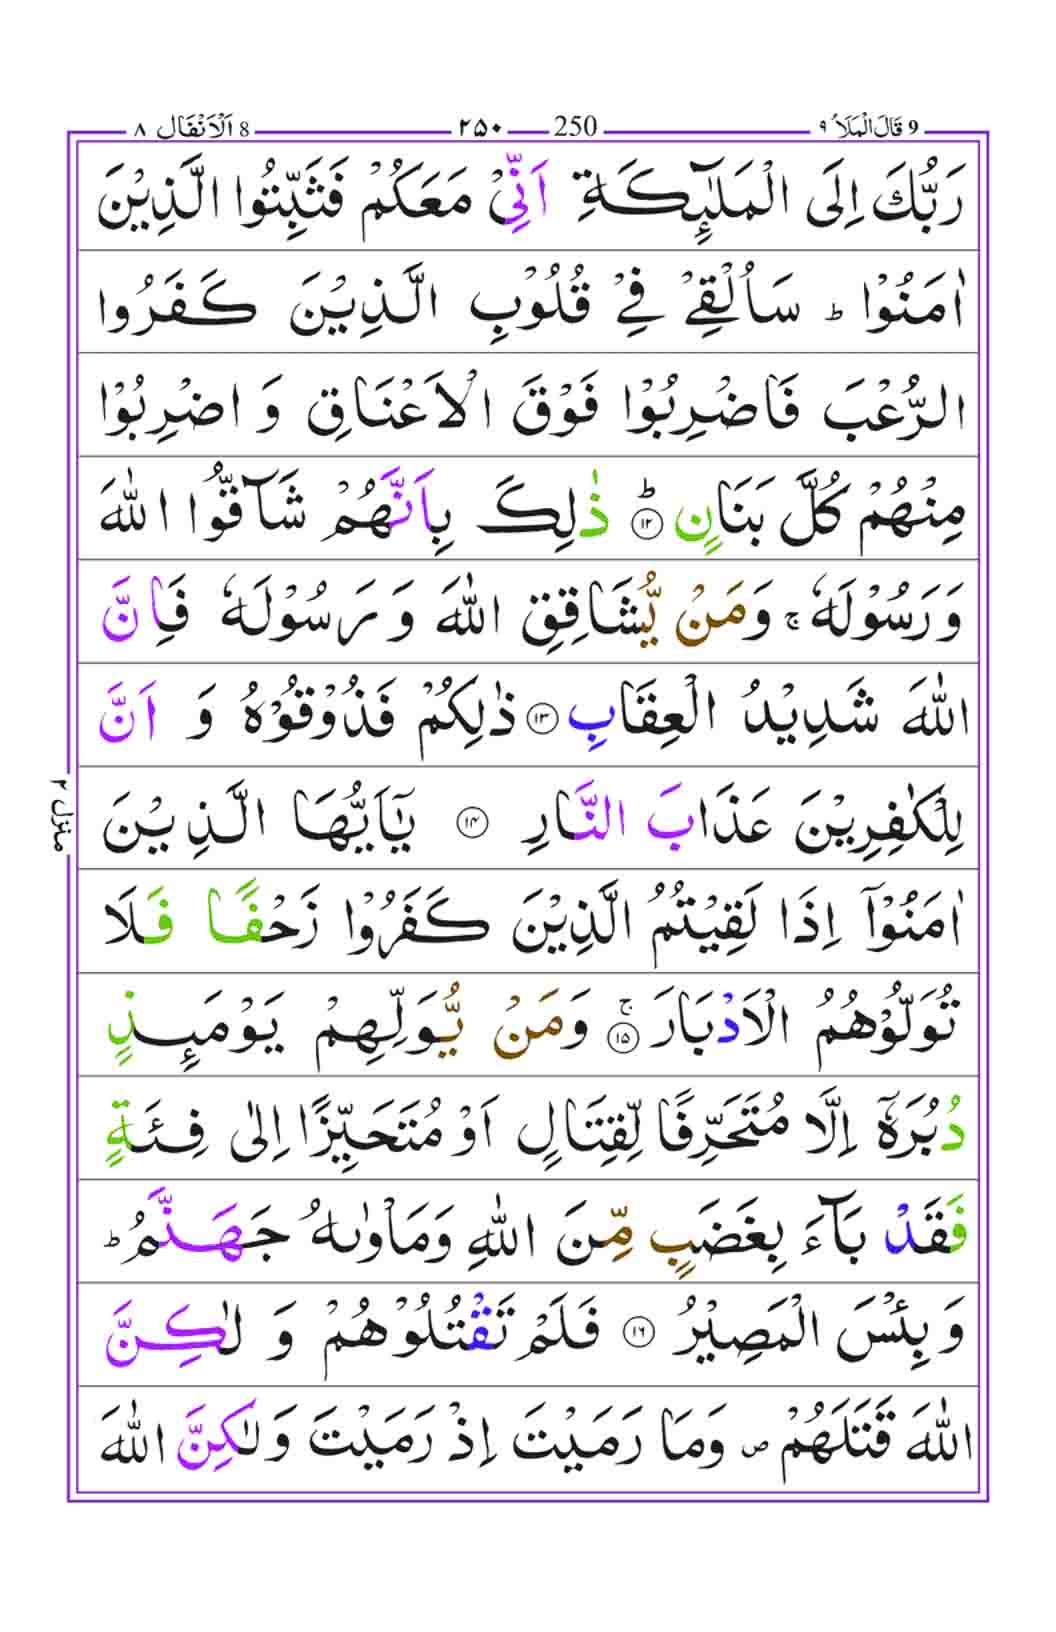 9 قَالَ الْمَلَاُ ٩ 250 ٢٥٠ 8 اَلْاَنْفَال ٨
رَبُّكَ اِلَى الْمَلٰٓئِكَةِ اَنِّیْ مَعَكُمْ فَثَبِّتُوا الَّذِیْنَ
اٰمَنُوْا ؕ سَاُلْقِیْ فِیْ قُلُوْبِ الَّذِیْنَ كَفَرُوا
الرُّعْبَ فَاضْرِبُوْا فَوْقَ الْاَعْنَاقِ وَ اضْرِبُوْا
مِنْهُمْ كُلَّ بَنَانٍ ؕ ۱۲ ذٰلِكَ بِاَنَّهُمْ شَآقُّوا اللّٰهَ
وَ رَسُوْلَهٗ ۚ وَ مَنْ یُّشَاقِقِ اللّٰهَ وَ رَسُوْلَهٗ فَاِنَّ
اللّٰهَ شَدِیْدُ الْعِقَابِ ۱۳ ذٰلِكُمْ فَذُوْقُوْهُ وَ اَنَّ
لِلْكٰفِرِیْنَ عَذَابَ النَّارِ ۱۴ یٰۤاَیُّهَا الَّذِیْنَ
اٰمَنُوْۤا اِذَا لَقِیْتُمُ الَّذِیْنَ كَفَرُوْا زَحْفًا فَلَا
تُوَلُّوْهُمُ الْاَدْبَارَ ۚ ۱۵ وَ مَنْ یُّوَلِّهِمْ یَوْمَىِٕذٍ
دُبُرَهٗۤ اِلَّا مُتَحَرِّفًا لِّقِتَالٍ اَوْ مُتَحَیِّزًا اِلٰى فِئَةٍ
فَقَدْ بَآءَ بِغَضَبٍ مِّنَ اللّٰهِ وَ مَاْوٰىهُ جَهَنَّمُ ؕ
وَ بِئْسَ الْمَصِیْرُ ۱۶ فَلَمْ تَقْتُلُوْهُمْ وَ لٰكِنَّ
اللّٰهَ قَتَلَهُمْ ۪ وَ مَا رَمَیْتَ اِذْ رَمَیْتَ وَ لٰكِنَّ اللّٰهَ
منزل ۲